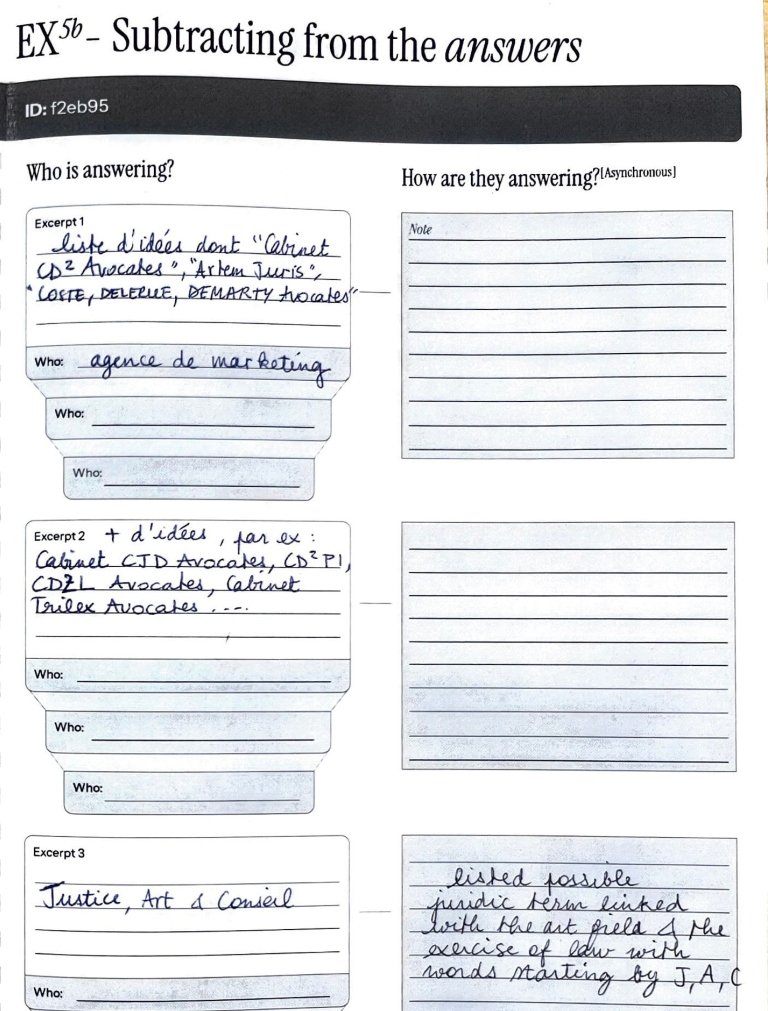 EX5b – Subtracting from the answers
ID: f2eb95
Who is answering?
How are they answering?[Asynchronous]
Excerpt 1
liste d'idées dont "Cabinet
CD² Avocates", "Artem Juris",
"COSTE, DELERUE, DEMARTY Avocates"
Who: agence de marketing
Who:
Who:
Note
Excerpt 2 + d'idées, par ex :
Cabinet CJD Avocates, CD²PI,
CD2L Avocates, Cabinet
Trilex Avocates ....
Who:
Who:
Who:
Excerpt 3
Justice, Art & Conseil
Who:
listed possible
juridic term linked
with the art field & the
exercise of law with
words starting by J, A, C